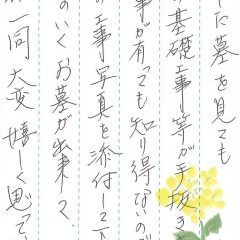 た墓を見ても
の基礎工事等が手抜き
事が有っても知り得ないので
工事写真を添付して下
のいくお墓が出来て、
一同大変嬉しく思ってい